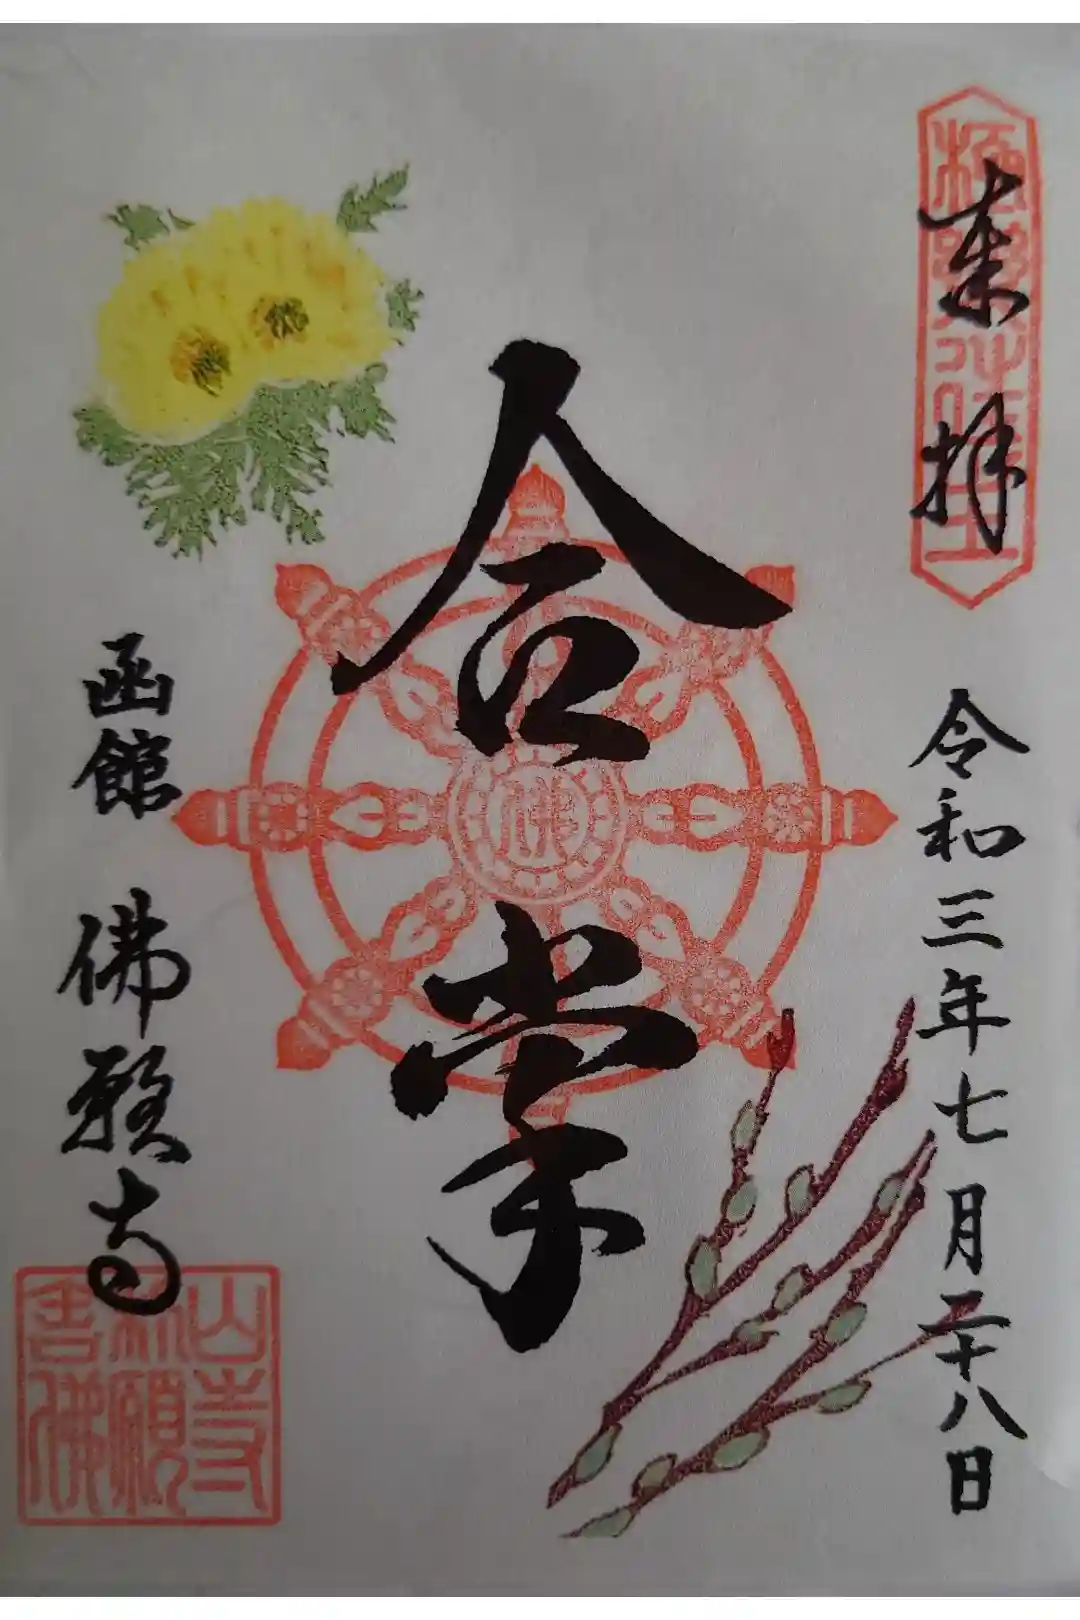 来拝
令和三年七月二十八日
合掌
佛
函館 佛願寺